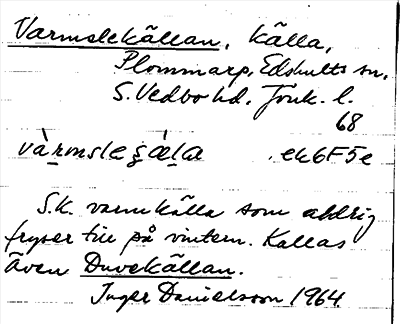 Varmslekällan, källa,
Plommarp, Edshults sn,
S. Vedbo hd, Jönk. l.
68
vàrmsleʒæ̀la ek6F5e
S.k. varmkälla som aldrig
fryser till på vintern. Kallas
även Duvekällan.
Inger Danielsson 1964